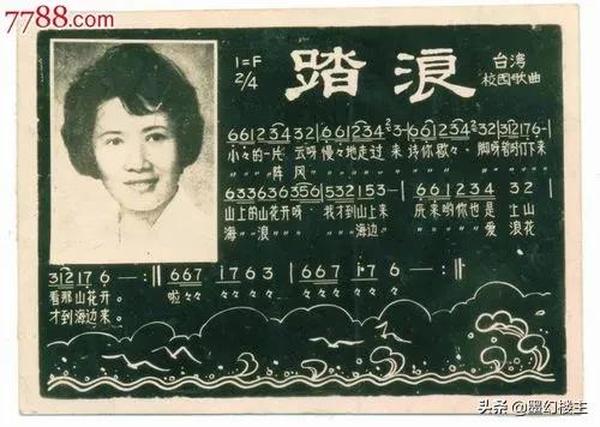 7788.com
1=F
2/4
踏浪
台湾
校园歌曲
6 6 1 2 3 4 3 2 | 6 6 1 2 3 4 2 3 - | 6 6 1 2 3 4 3 2 | 3 1 2 1 7 6 - |
小々的一片 云呀 慢々地走过来 请你歇々 脚呀暂时下来
〃〃〃 阵 风 〃
6 3 3 6 3 6 3 5 6 | 5 3 2 1 5 3 - | 6 6 1 2 3 4 3 2 |
山上的山花开呀 我才到山上来 原来哟你也是 上山
海 浪 〃 海边 〃 爱 浪花
3 1 2 1 7 6 — :‖ 6 6 7 1 7 6 3 | 6 6 7 1 7 6 — :‖
看那山花开。 啦々々 々々々々 々々々 々々 々
才到海边来。
头条 @墨幻楼主